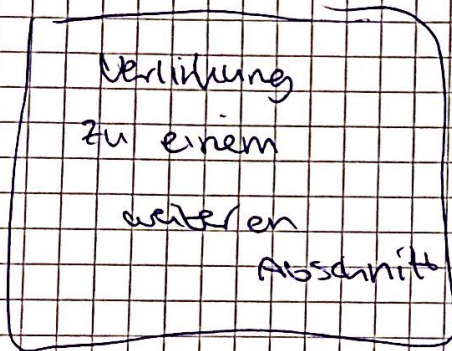 Verlinkung
zu einem
weiteren
Abschnitt